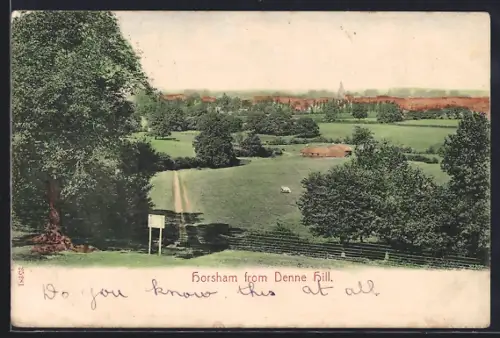 Horsham from Denne Hill.
Do you know this at all.